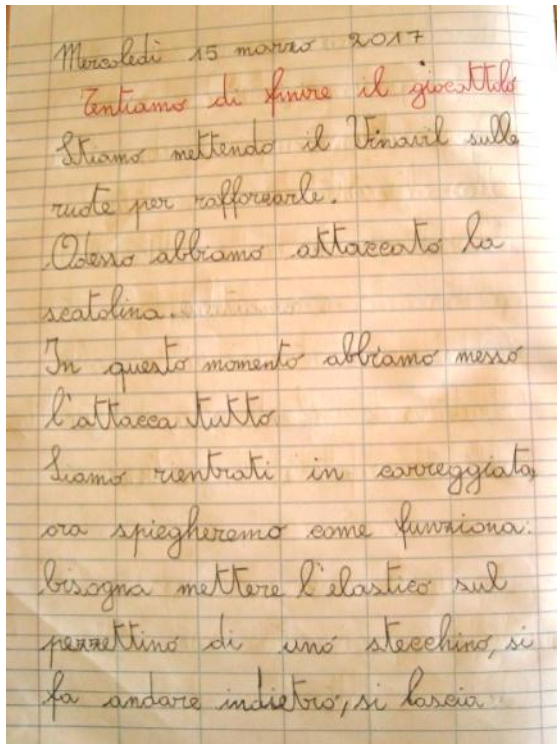 Mercoledì 15 marzo 2017
Tentiamo di finire il giocattolo
Stiamo mettendo il Vinavil sulle
ruote per rafforzarle.
Adesso abbiamo attaccato la
scatolina.
In questo momento abbiamo messo
l'attacca tutto
Siamo rientrati in carreggiata,
ora spiegheremo come funziona:
bisogna mettere l'elastico sul
pezzettino di uno stecchino, si
fa andare indietro, si lascia